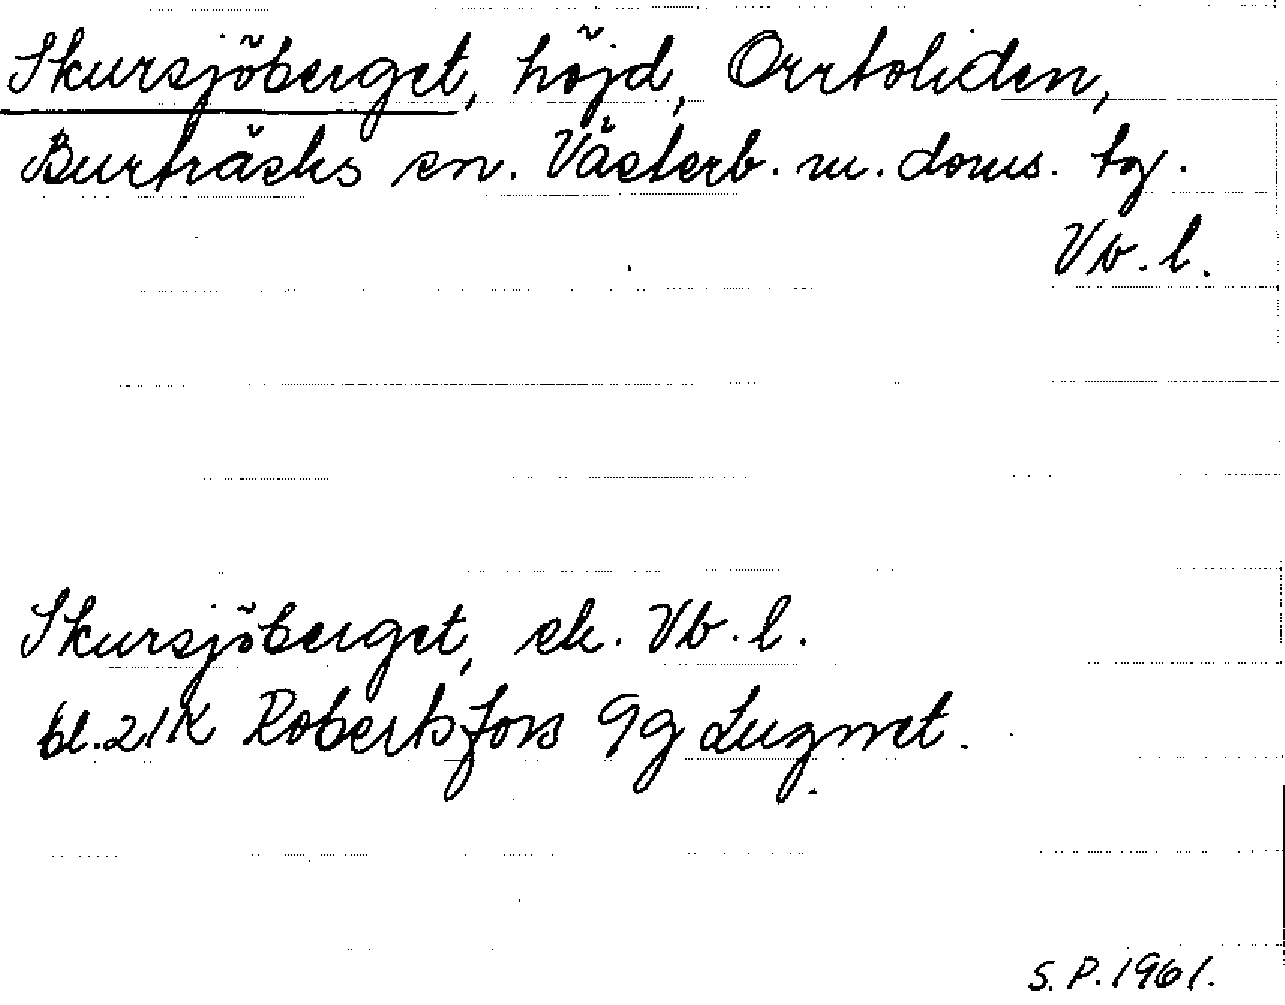 Skursjöberget, höjd, Orrtoliden,
Burträsks sn. Västerb. m. doms. tg.
Vb. l.
Skursjöberget, ek. Vb. l.
bl. 21K Robertsfors 9g Lugnet.
S. P. 1961.